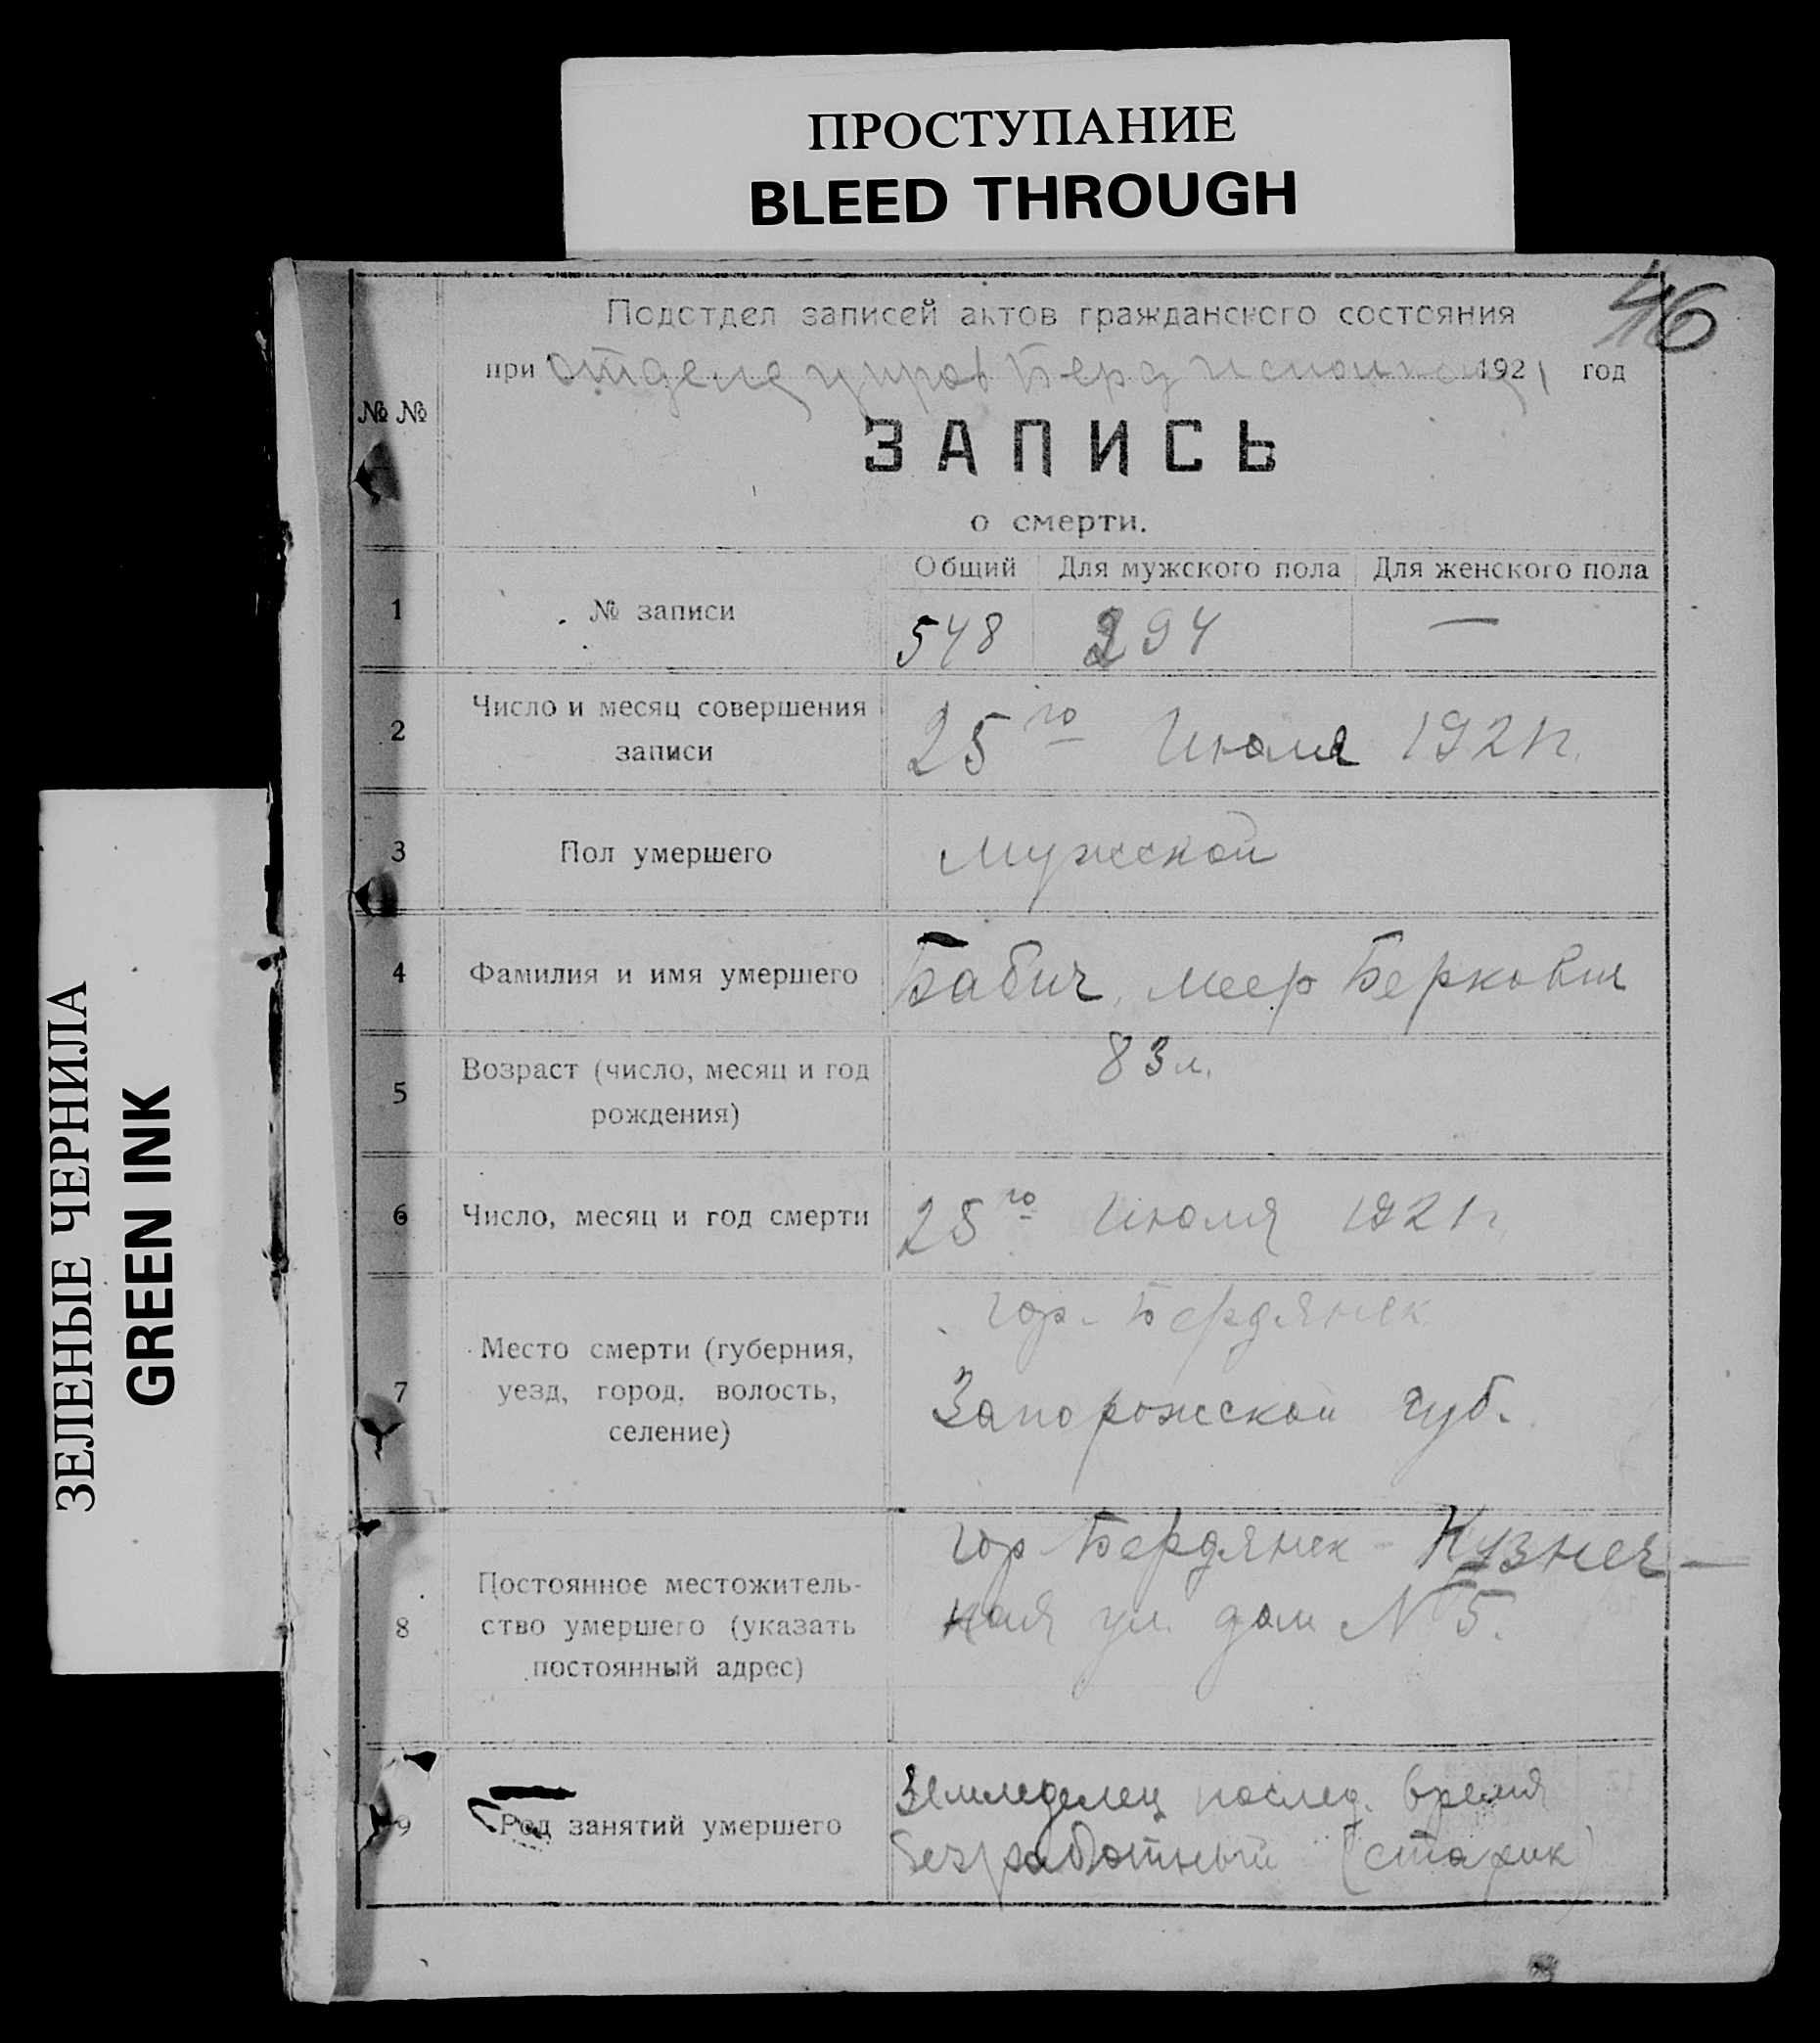 ПРОСТУПАНИЕ
BLEED THROUGH
ЗЕЛЕНЫЕ ЧЕРНИЛА
GREEN INK
46
Подотдел записей актов гражданского состояния
при отделе управ Берд исполкома 1921 год
№ №
ЗАПИСЬ
о смерти.
Общий Для мужского пола Для женского пола
1 № записи 548 294 —
2 Число и месяц совершения
записи 25го Июля 1921г.
3 Пол умершего Мужской
4 Фамилия и имя умершего Бабич, Меер Беркович
5 Возраст (число, месяц и год
рождения) 83 л.
6 Число, месяц и год смерти 25го Июля 1921г.
7 Место смерти (губерния,
уезд, город, волость,
селение)
гор. Бердянск
Запорожской губ.
8 Постоянное местожитель-
ство умершего (указать
постоянный адрес)
гор Бердянск - Кузнеч-
ная ул. дом N 5.
9 Род занятий умершего
Земледелец послед. время
безработный (старик)